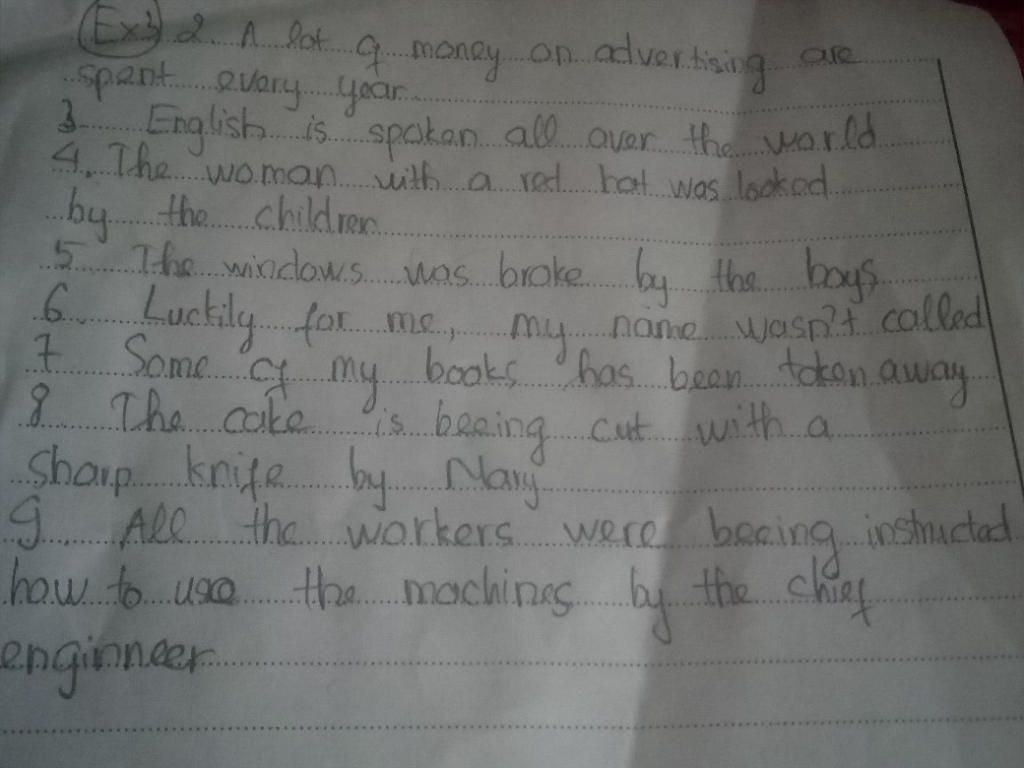 Ex3 2. A lot of money on advertising are
spent every year
3 English is spoken all over the world
4. The woman with a red hat was looked
by the children
5 The windows was broke by the boys
6 Luckily for me, my name wasn't called
7 Some of my books has been taken away
8 The cake is beeing cut with a
sharp knife by Mary
9 All the workers were beeing instructed
how to use the machines by the chief
enginneer